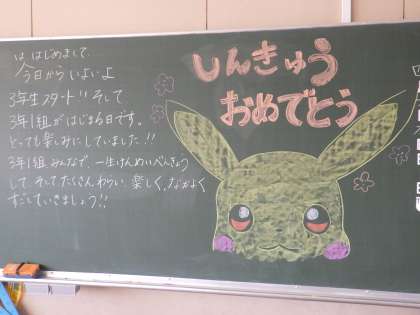 はじめまして…
今日からいよいよ
3年生スタート!! そして
3年1組がはじまる日です。
とっても楽しみにしていました!!
3年1組みんなで、一生けんめいべんきょう
して、そしてたくさんわらい、楽しく、なかよく
すごしていきましょう!!
しんきゅう
おめでとう